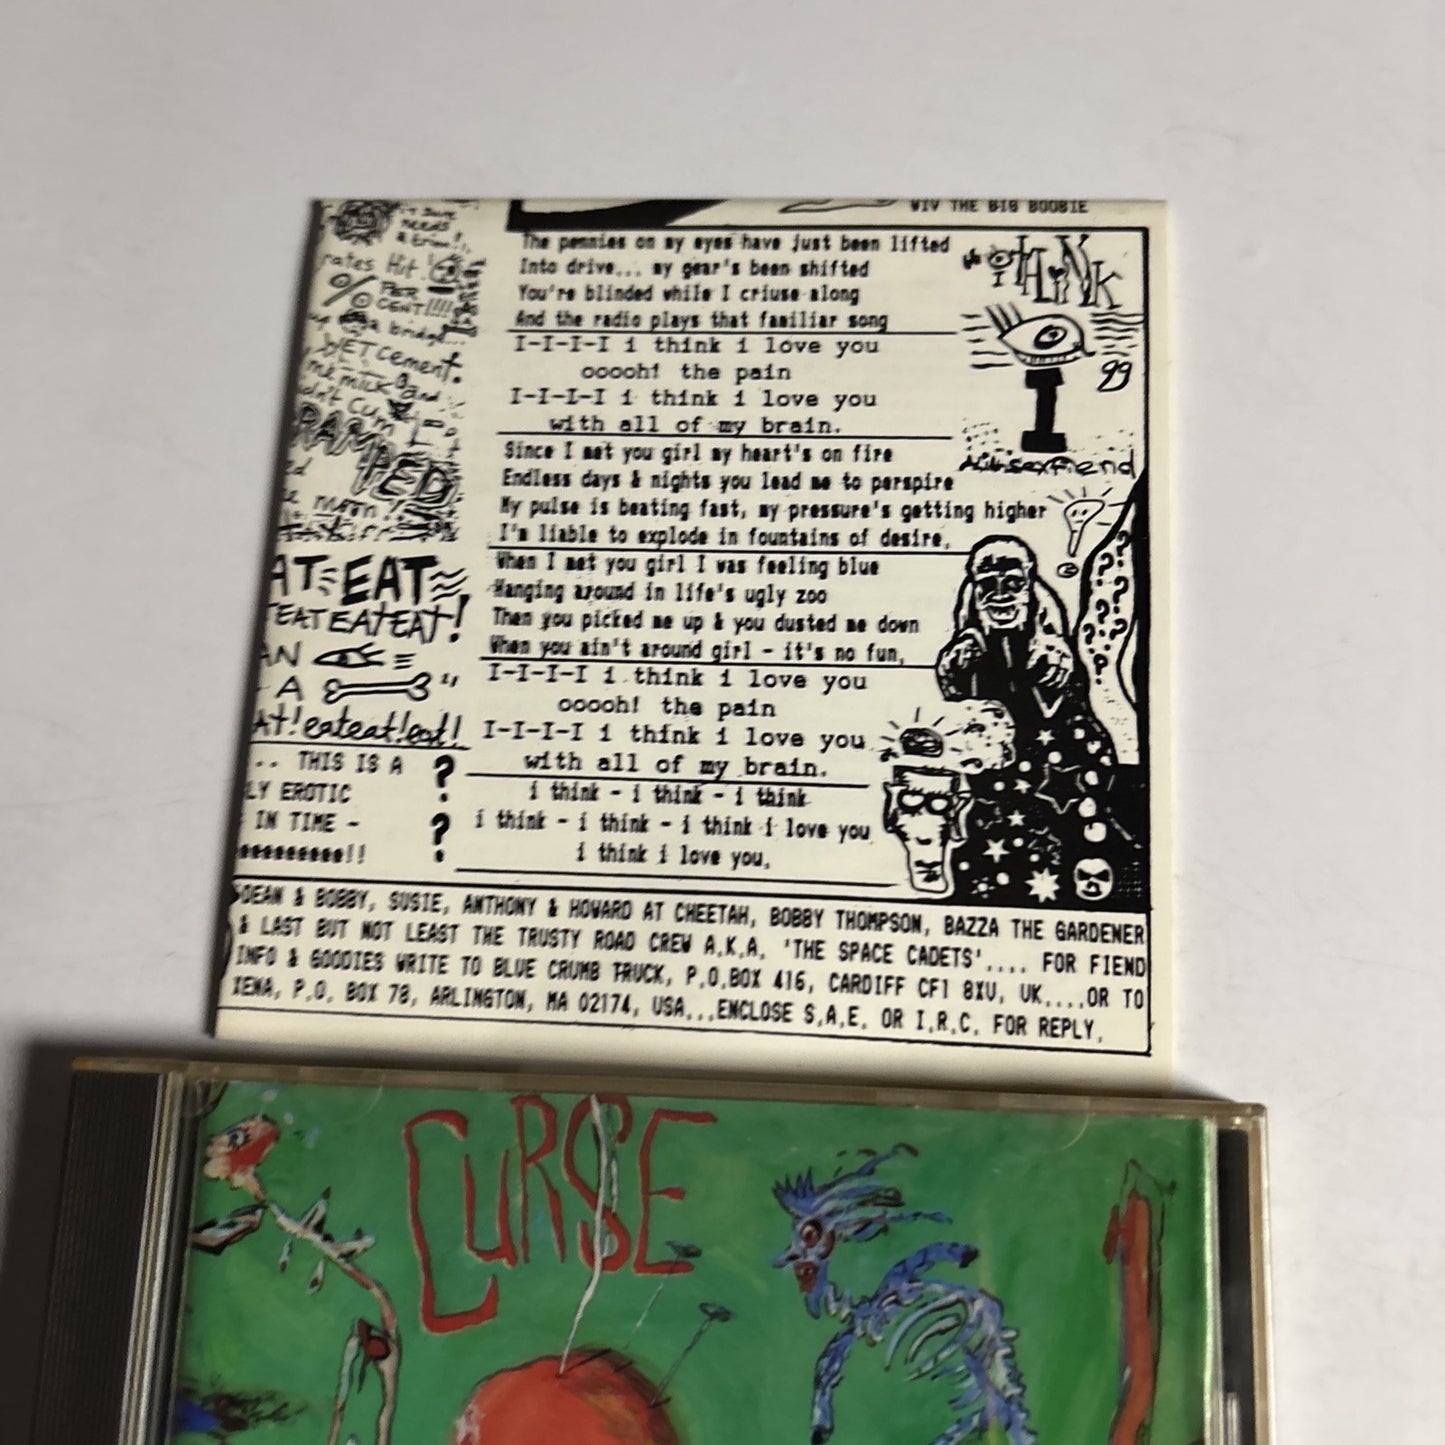 WIV THE BIG BOOBIE
needs
a trim!
rates Hit
% PER
CENT!!!!
up a bridge...
WET cement.
me mick and
didn't cum
RAMPED
moon!
The pennies on my eyes have just been lifted
Into drive... my gear's been shifted
You're blinded while I criuse along
And the radio plays that familiar song
I-I-I-I i think i love you
ooooh! the pain
I-I-I-I i think i love you
with all of my brain.
Since I met you girl my heart's on fire
Endless days & nights you lead me to perspire
My pulse is beating fast, my pressure's getting higher
I'm liable to explode in fountains of desire,
When I met you girl I was feeling blue
Hanging around in life's ugly zoo
Then you picked me up & you dusted me down
When you ain't around girl - it's no fun,
I-I-I-I i think i love you
ooooh! the pain
I-I-I-I i think i love you
with all of my brain.
i think - i think - i think
i think - i think - i think i love you
i think i love you,
I THINK
99
Alien sex fiend
AT EAT
TEAT EAT EAT!
AN
A "
AT! eat eat! eat!
.. THIS IS A ?
LY EROTIC
IN TIME - ?
eeeeeeeee!!
DEAN & BOBBY, SUSIE, ANTHONY & HOWARD AT CHEETAH, BOBBY THOMPSON, BAZZA THE GARDENER
& LAST BUT NOT LEAST THE TRUSTY ROAD CREW A.K.A. 'THE SPACE CADETS'.... FOR FIEND
INFO & GOODIES WRITE TO BLUE CRUMB TRUCK, P.O.BOX 416, CARDIFF CF1 8XU, UK....OR TO
XENA, P.O. BOX 78, ARLINGTON, MA 02174, USA...ENCLOSE S.A.E. OR I.R.C. FOR REPLY.
CURSE